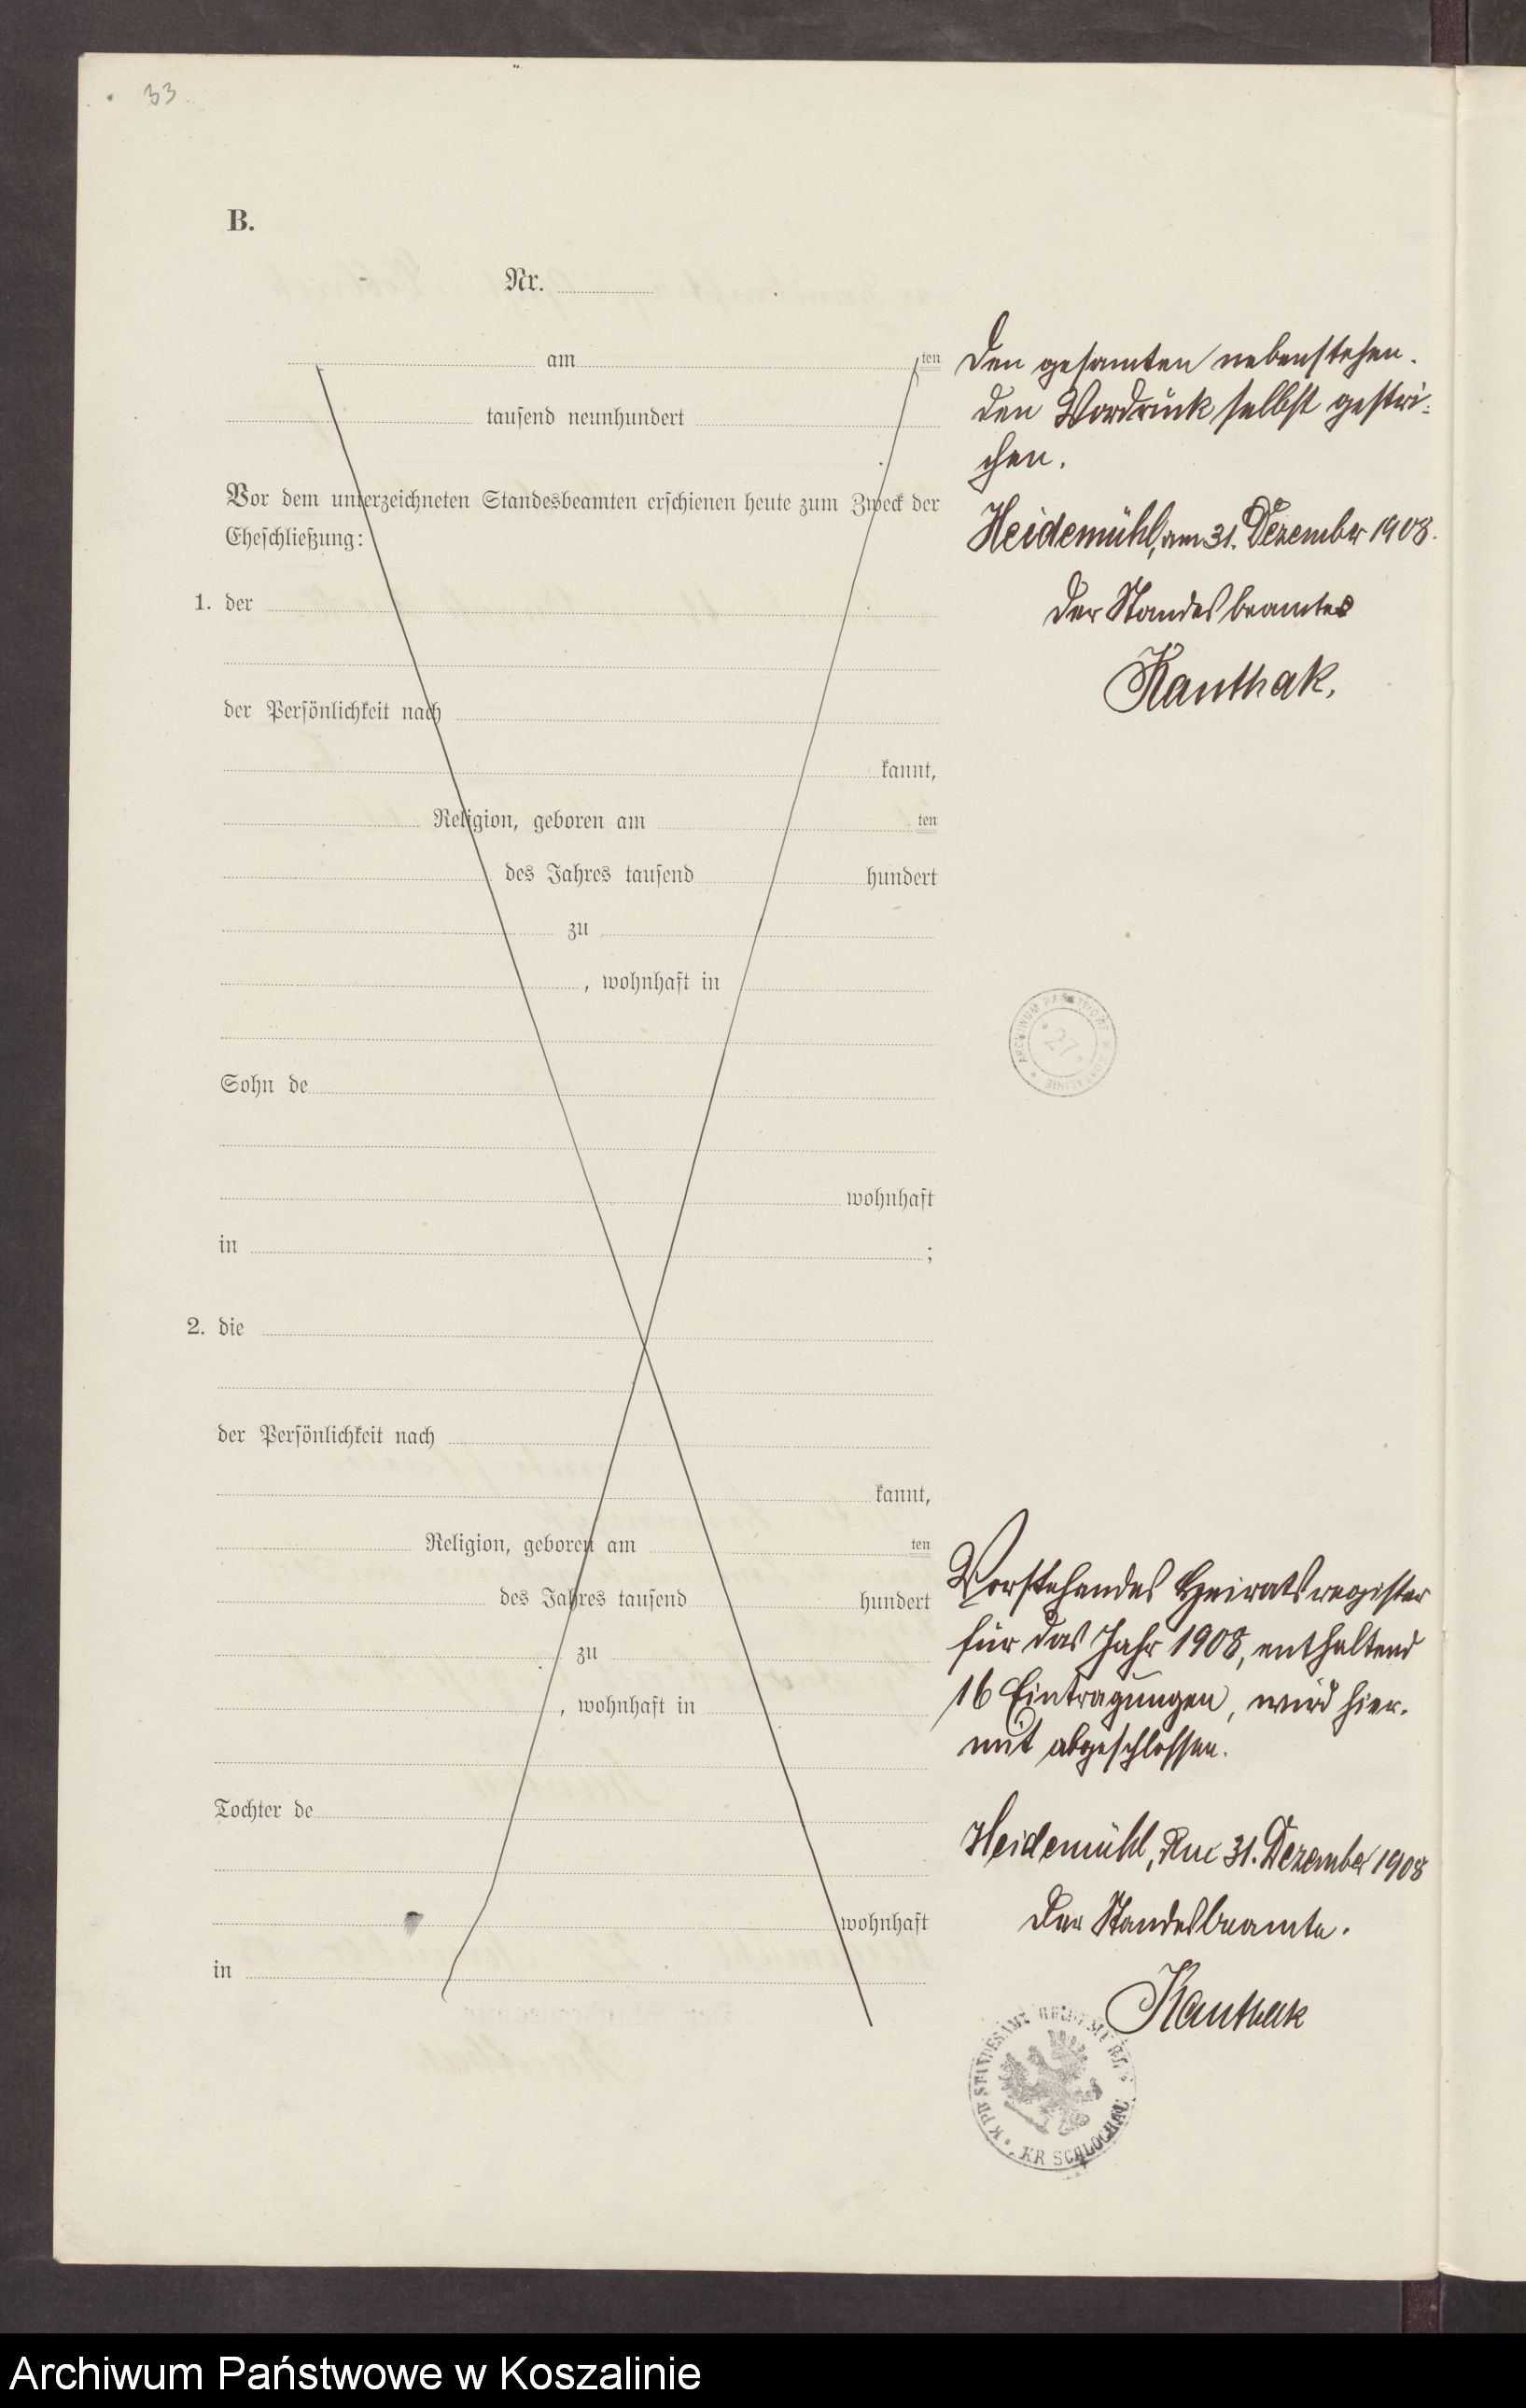 33
B.
Nr.
am ten
tausend neunhundert
Vor dem unterzeichneten Standesbeamten erschienen heute zum Zweck der
Eheschließung:
1. der
der Persönlichkeit nach
kannt,
Religion, geboren am ten
des Jahres tausend hundert
zu
, wohnhaft in
Sohn de
wohnhaft
in ;
2. die
der Persönlichkeit nach
kannt,
Religion, geboren am ten
des Jahres tausend hundert
zu
, wohnhaft in
Tochter de
wohnhaft
in
Den gesamten nebenstehen-
den Vordruck selbst gestri-
chen.
Heidemühl, am 31. Dezember 1908.
Der Standesbeamte
Kanthak.
ARCHIWUM PAŃSTWOWE W KOSZALINIE
27
Vorstehendes Heiratsregister
für das Jahr 1908, enthaltend
16 Eintragungen, wird hier-
mit abgeschlossen.
Heidemühl, den 31. Dezember 1908
Der Standesbeamte.
Kanthak
STANDESAMT HEIDEMÜHL
KR SCHLOCHAU
Archiwum Państwowe w Koszalinie